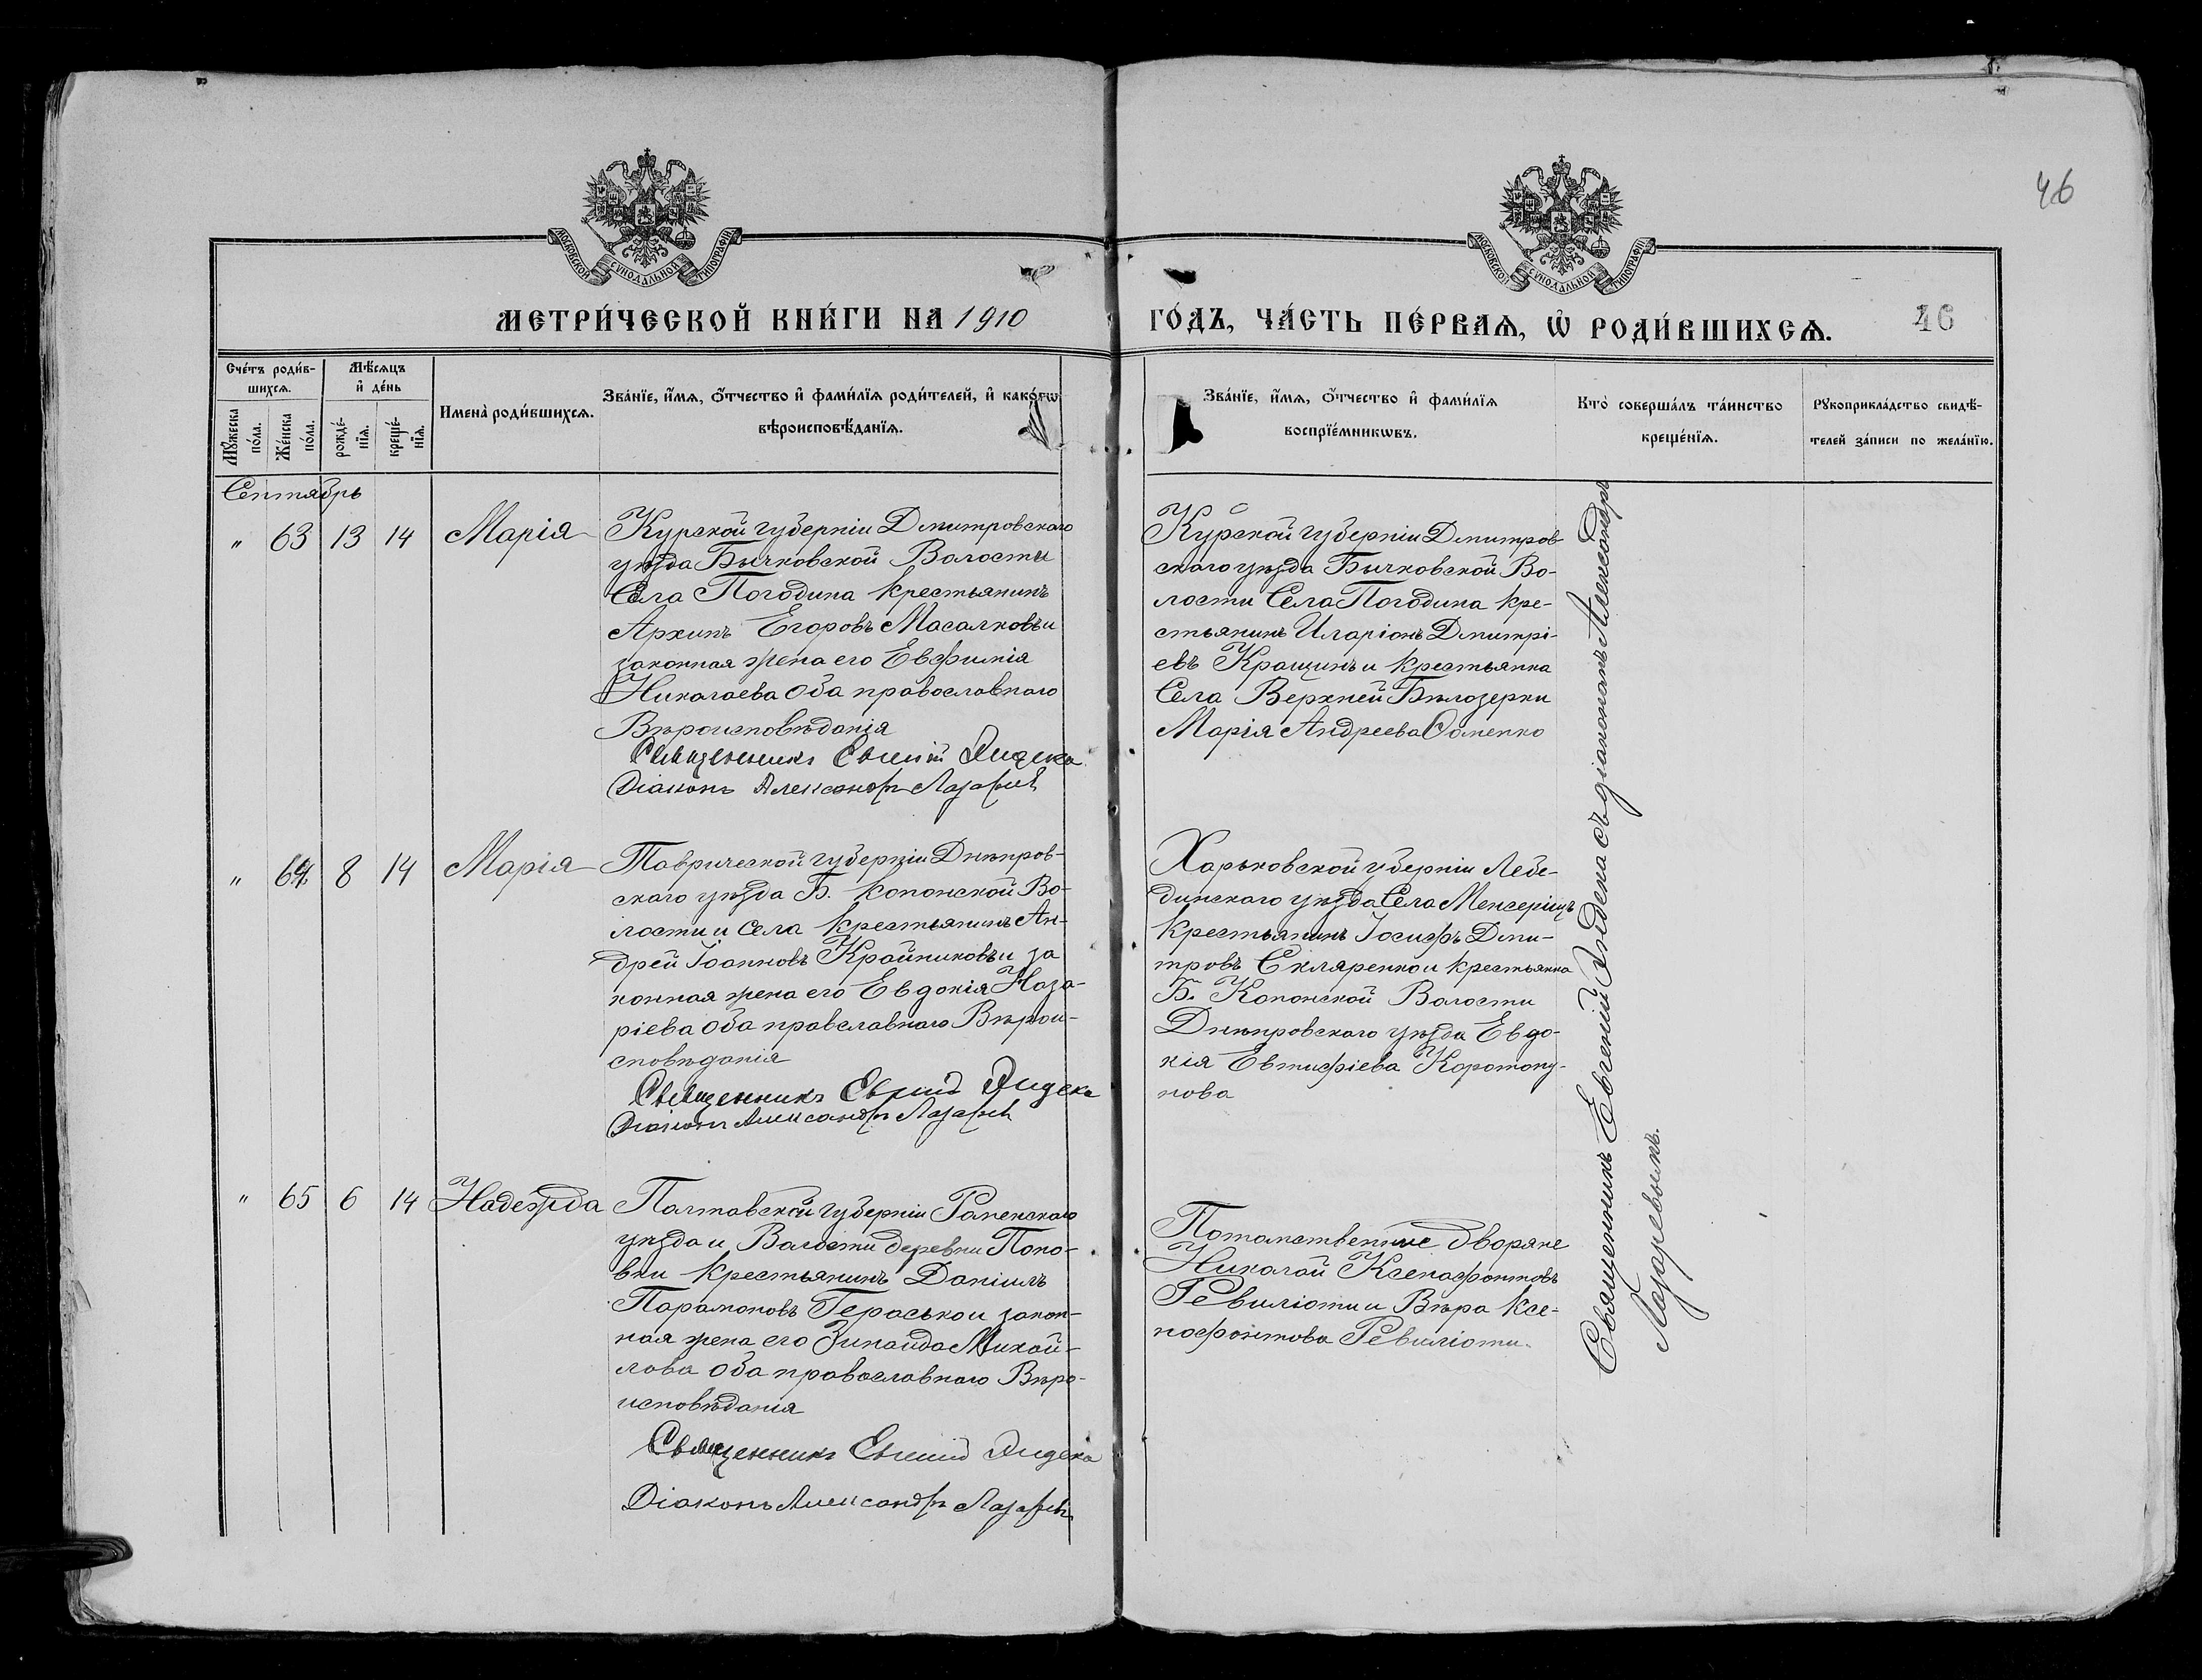 46
МОСКОВСКОЙ СИНОДАЛЬНОЙ ТИПОГРАФІИ
МОСКОВСКОЙ СИНОДАЛЬНОЙ ТИПОГРАФІИ
МЕТРИ́ЧЕСКОЙ КНИ́ГИ НА 1910
ГО́ДЪ, ЧА́СТЬ ПЕ́РВАѦ, Ѡ҆ РОДИ́ВШИХСѦ.
46
Сче́тъ роди́в-
шихсѧ.
Мѣ́сѧцъ
и҆ де́нь
Мꙋ́жеска
по́ла.
Же́нска
по́ла.
рожде́-
нїѧ.
креще́-
нїѧ.
Имена̀ роди́вшихсѧ.
Зва́нїе, и҆́мѧ, ѻ҆́тчество и҆ фами́лїѧ роди́телей, и҆ како́гѡ
вѣроисповѣ́данїѧ.
Зва́нїе, и҆́мѧ, ѻ҆́тчество и҆ фами́лїѧ
воспрїе́мникѡвъ.
Кто̀ соверша́лъ та́инство
креще́нїѧ.
Рꙋкоприкла́дство свидѣ́-
телей за́писи по жела́нїю.
Сентябрь
" 63 13 14 Марія
Курской губерніи Дмитровского
уѣзда Бычковской Волости
Села Погодина крестьянинъ
Архипъ Егоровъ Масалковъ и
законная жена его Евфимія
Николаева оба православнаго
Вѣроисповѣданія
Священникъ Евгеній Дидека
Діаконъ Александръ Лазаревъ
Курской губерніи Дмитров-
скаго уѣзда Бычковской Во-
лости Села Погодина кре-
стьянинъ Иларіонъ Дмитрі-
евъ Кращинъ и крестьянка
Села Верхней Бѣлозерки
Марія Андреева Соменко
" 64 8 14 Марія
Таврической губерніи Днѣпров-
скаго уѣзда Б. Копонской Во-
лости и села крестьянинъ Ан-
дрей Іоанновъ Крайниковъ и за
конная жена его Евдокія Наза-
ріева оба правславнаго Вѣрои-
сповѣданія
Священникъ Евгеній Дидека
Діаконъ Александръ Лазаревъ
Харьковской губерніи Лебе-
динскаго уѣзда Села Межерічъ
крестьянинъ Іосифъ Дми-
тровъ Скляренко и крестьянка
Б. Копонской Волости
Днѣпровскаго уѣзда Евдо-
кія Евтифіева Коротону-
нова
" 65 6 14 Надежда
Полтавской губерніи Роменскаго
уѣзда и Волости деревни Попо-
вки крестьянинъ Даніилъ
Парамоновъ Гераськои закон-
ная жена его Зинаида Михай-
лова оба православнаго Вѣро-
исповѣданія
Священникъ Евгеній Дидека
Діаконъ Александръ Лазаревъ
Потомственные дворяне
Николай Ксенофонтовъ
Ревиліоти и Вѣра Ксе-
нофонтова Ревиліоти.
Священникъ Евгеній Дидека съ діакономъ Александръ
Лазаревымъ.